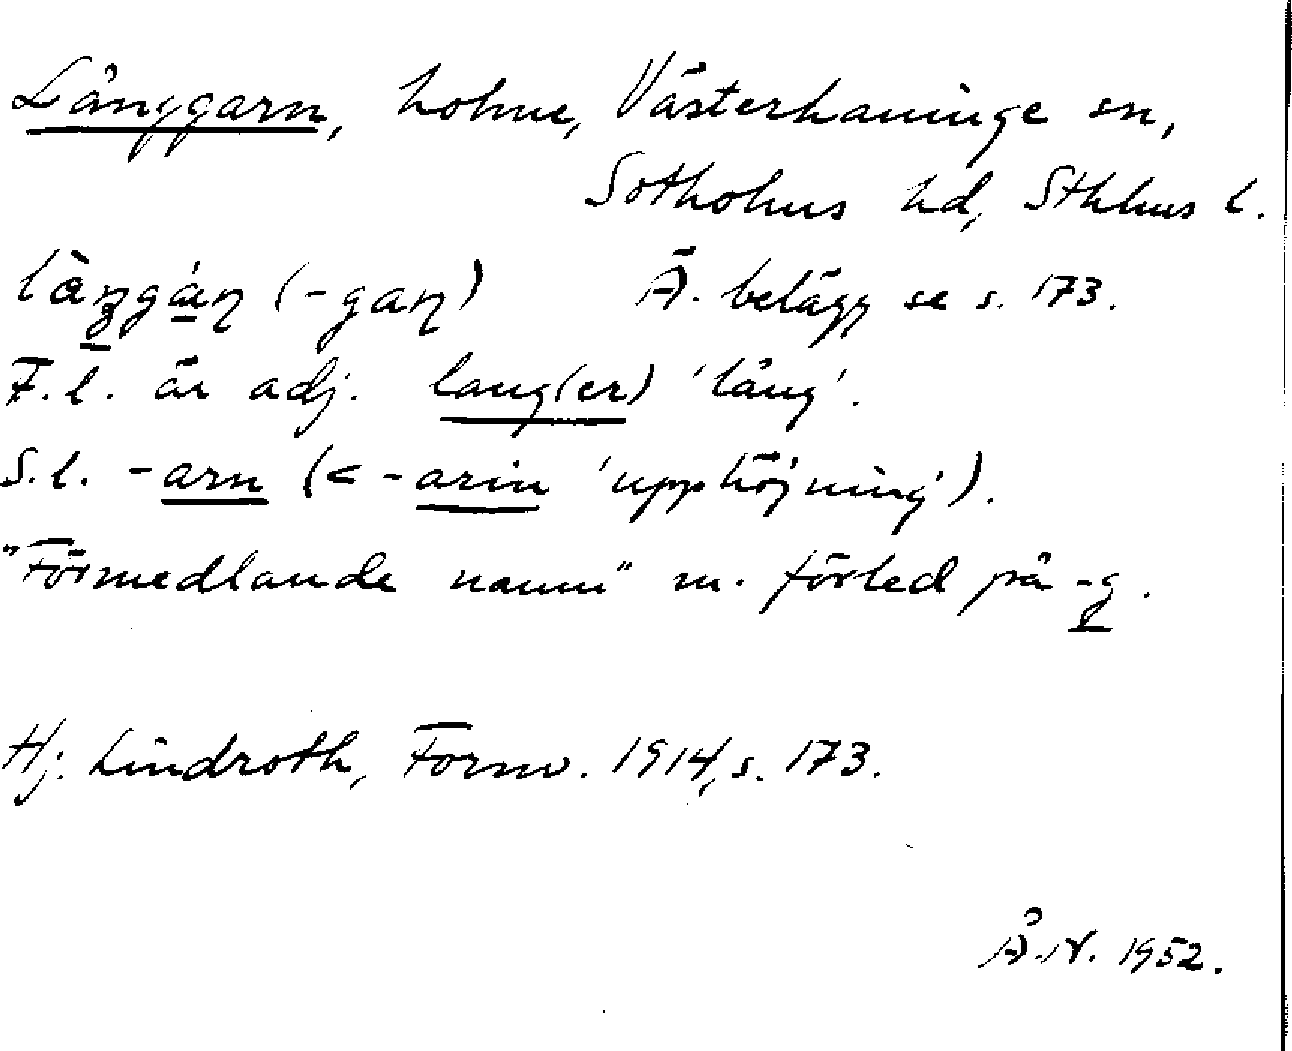 Långgarn, holme, Västerhaninge sn,
Sotholms hd, Sthlms l.
låŋgáɳ (-gaɳ) Ä. belägg se s. 173.
F.l. är adj. lang(er) 'lång'.
S.l. -arn (< -arin 'upphöjning').
"Förmedlande namn" m. förled på -g.
Hj. Lindroth, Fornv. 1914, s. 173.
Å.N. 1952.